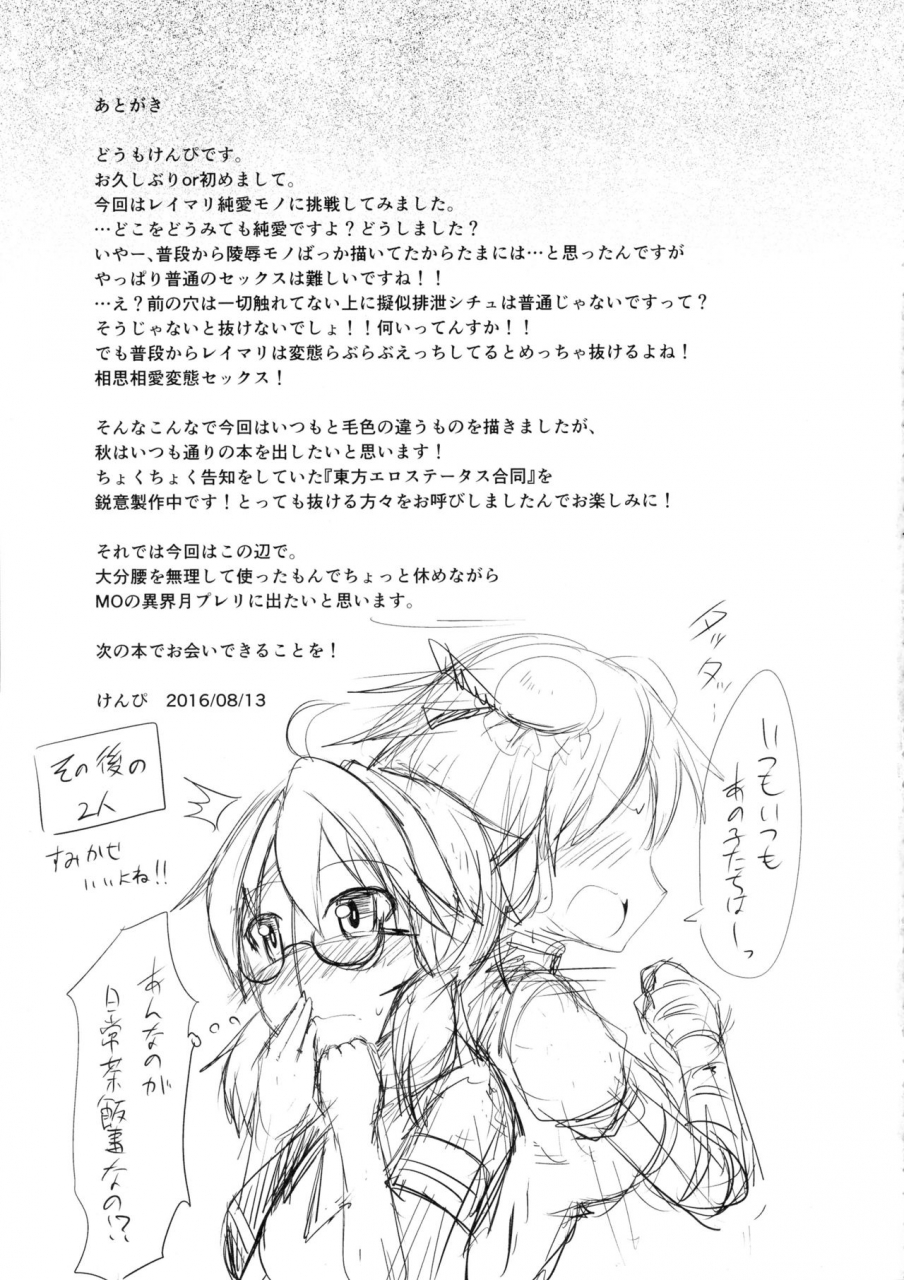 あとがき
どうもけんぴです。
お久しぶりor初めまして。
今回はレイマリ純愛モノに挑戦してみました。
…どこをどうみても純愛ですよ？どうしました？
いやー、普段から陵辱モノばっか描いてたからたまには…と思ったんですが
やっぱり普通のセックスは難しいですね！！
…え？前の穴は一切触れてない上に擬似排泄シチュは普通じゃないですって？
そうじゃないと抜けないでしょ！！何いってんすか！！
でも普段からレイマリは変態らぶらぶえっちしてるとめっちゃ抜けるよね！
相思相愛変態セックス！
そんなこんなで今回はいつもと毛色の違うものを描きましたが、
秋はいつも通りの本を出したいと思います！
ちょくちょく告知をしていた『東方エロステータス合同』を
鋭意製作中です！とっても抜ける方々をお呼びしましたんでお楽しみに！
それでは今回はこの辺で。
大分腰を無理して使ったもんでちょっと休めながら
MOの異界月プレリに出たいと思います。
次の本でお会いできることを！
けんぴ　2016/08/13
その後の
2人
すみかせ
いいよね!!
タッタッ…
いつもいつも
あの子たちはーっ
あんなのが
日常茶飯事なの!?